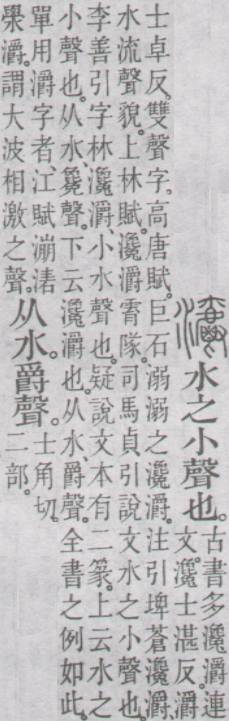 灂水之小聲也。
古書多瀺灂連
文。瀺士湛反。灂
士卓反。雙聲字。高唐賦。巨石溺溺之瀺灂。注引埤蒼瀺灂、
水流聲貌。上林賦。瀺灂霣隊。司馬貞引說文水之小聲也。
李善引字林瀺灂、小水聲也。疑說文本有二篆。上云水之
小聲也。从水、毚聲。下云瀺灂也。从水、爵聲。全書之例如此。
單用灂字者、江賦漰湱
澩灂。謂大波相激之聲。
从水。爵聲。
士角切。
二部。